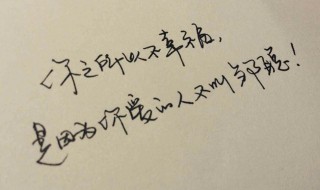 你之所以不幸福,
是因为你爱的人不叫郭聪!